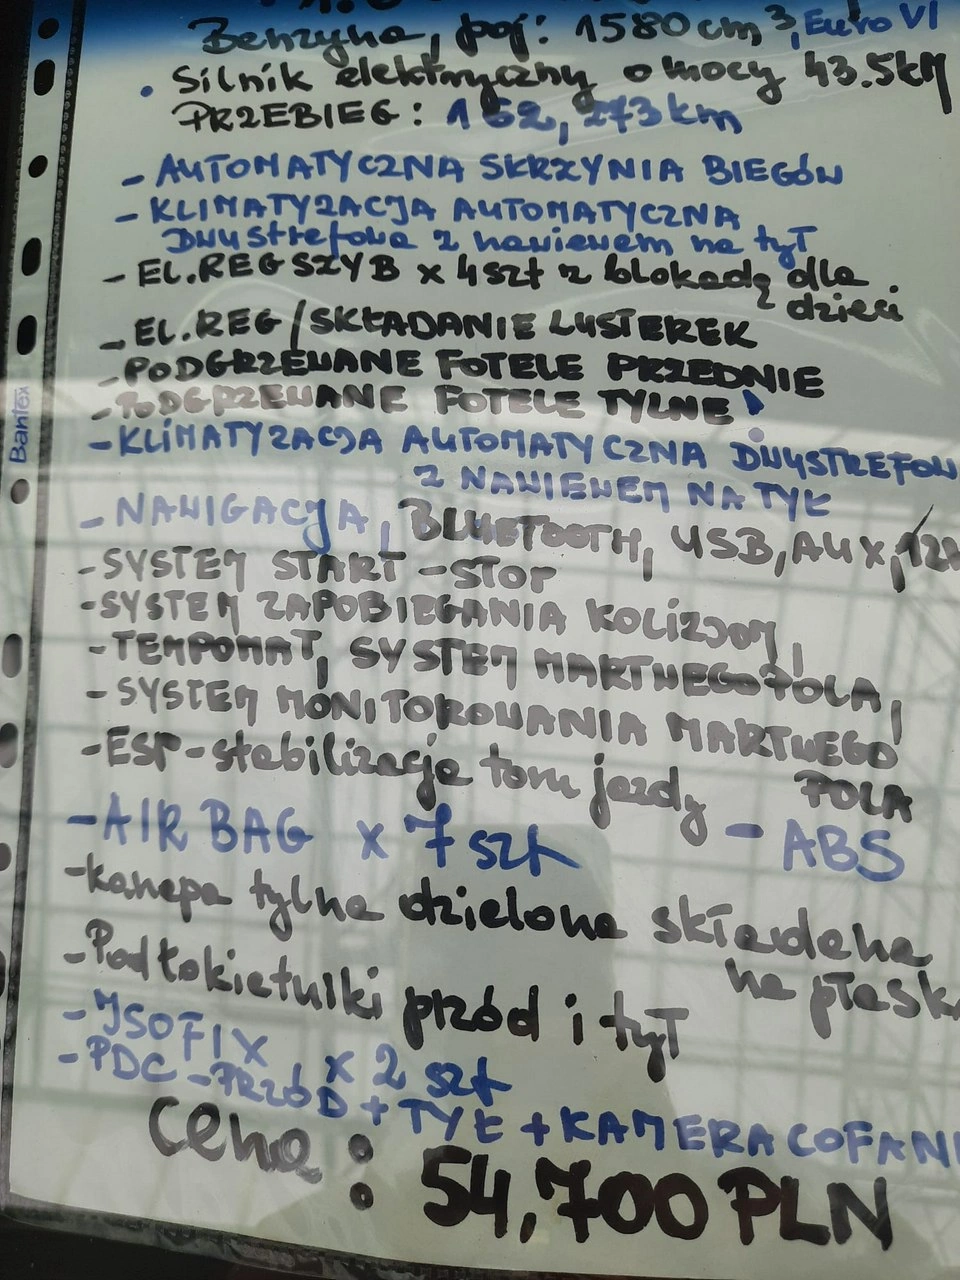 Benzyna, poj: 1580 cm³, Euro VI
• Silnik elektryczny o mocy 43.5kM
PRZEBIEG: 162,273 km
- AUTOMATYCZNA SKRZYNIA BIEGÓW
- KLIMATYZACJA AUTOMATYCZNA
Dwustrefowa z nawiewem na tył
- EL.REG SZYB x 4szt z blokadą dla
dzieci
- EL.REG/SKŁADANIE LUSTEREK
- PODGRZEWANE FOTELE PRZEDNIE
- PODGRZEWANE FOTELE TYLNE
- KLIMATYZACJA AUTOMATYCZNA DWUSTREFOW
Z NAWIEWEM NA TYŁ
- NAWIGACJA, BLUETOOTH, USB, AUX,
- SYSTEM START - STOP
- SYSTEM ZAPOBIEGANIA KOLIZJOM,
- TEMPOMAT, SYSTEM MARTWEGO POLA,
- SYSTEM MONITOROWANIA MARTWEGO
POLA
- ESP - stabilizacja toru jazdy
- AIR BAG x 7 szt - ABS
- kanapa tylna dzielona składana
na płask
- Podłokietniki przód i tył
- ISOFIX x 2 szt
- PDC - PRZÓD + TYŁ + KAMERA COFANI
Cena: 54,700 PLN
Bantex